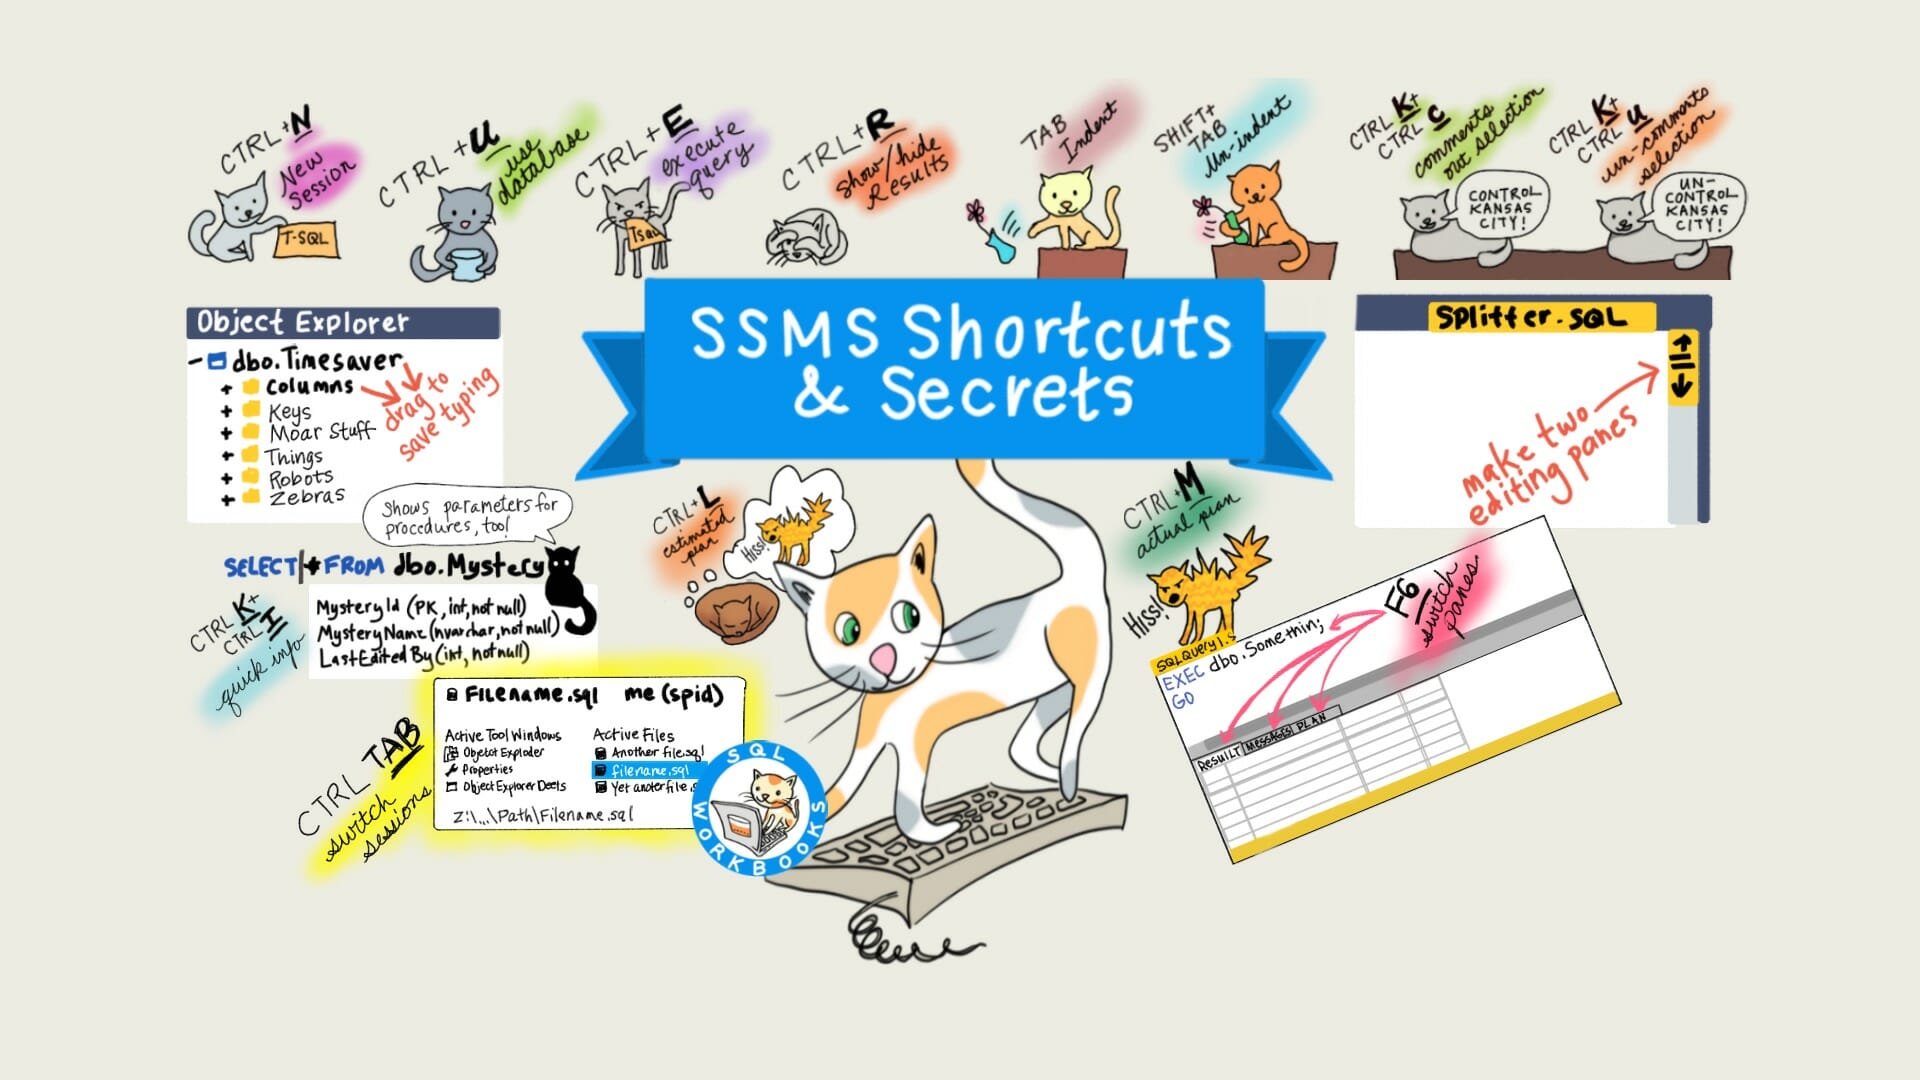 CTRL+N
New
Session
T-SQL
CTRL+U
use
database
CTRL+E
execute
query
Tsql
CTRL+R
show/hide
Results
TAB
Indent
SHIFT+
TAB
Un-indent
CTRL K+
CTRL C
comments
out selection
CONTROL
KANSAS
CITY!
CTRL K+
CTRL U
un-comments
selection
UN-
CONTROL
KANSAS
CITY!
SSMS Shortcuts
& Secrets
Object Explorer
dbo.Timesaver
+ Columns
+ Keys
+ Moar Stuff
+ Things
+ Robots
+ Zebras
drag to
save typing
Splitter.SQL
make two
editing panes
shows parameters for
procedures, too!
SELECT * FROM dbo.Mystery
MysteryId (PK, int, not null)
MysteryName (nvarchar, not null)
LastEditedBy (int, not null)
CTRL K+
CTRL I
quick info
CTRL+L
estimated
plan
Hiss!
CTRL+M
actual plan
Hiss!
F6
switch
panes
SQLQuery1.s
EXEC dbo.Somethin;
GO
RESULT MESSAGES PLAN
CTRL TAB
switch
sessions
Filename.sql me (spid)
Active Tool Windows
Object Exploder
Properties
Object Explorer Deets
Active Files
Another file.sql
filename.sql
Yet anoter file.s
Z:\...\Path\Filename.sql
SQL
WORKBOOKS